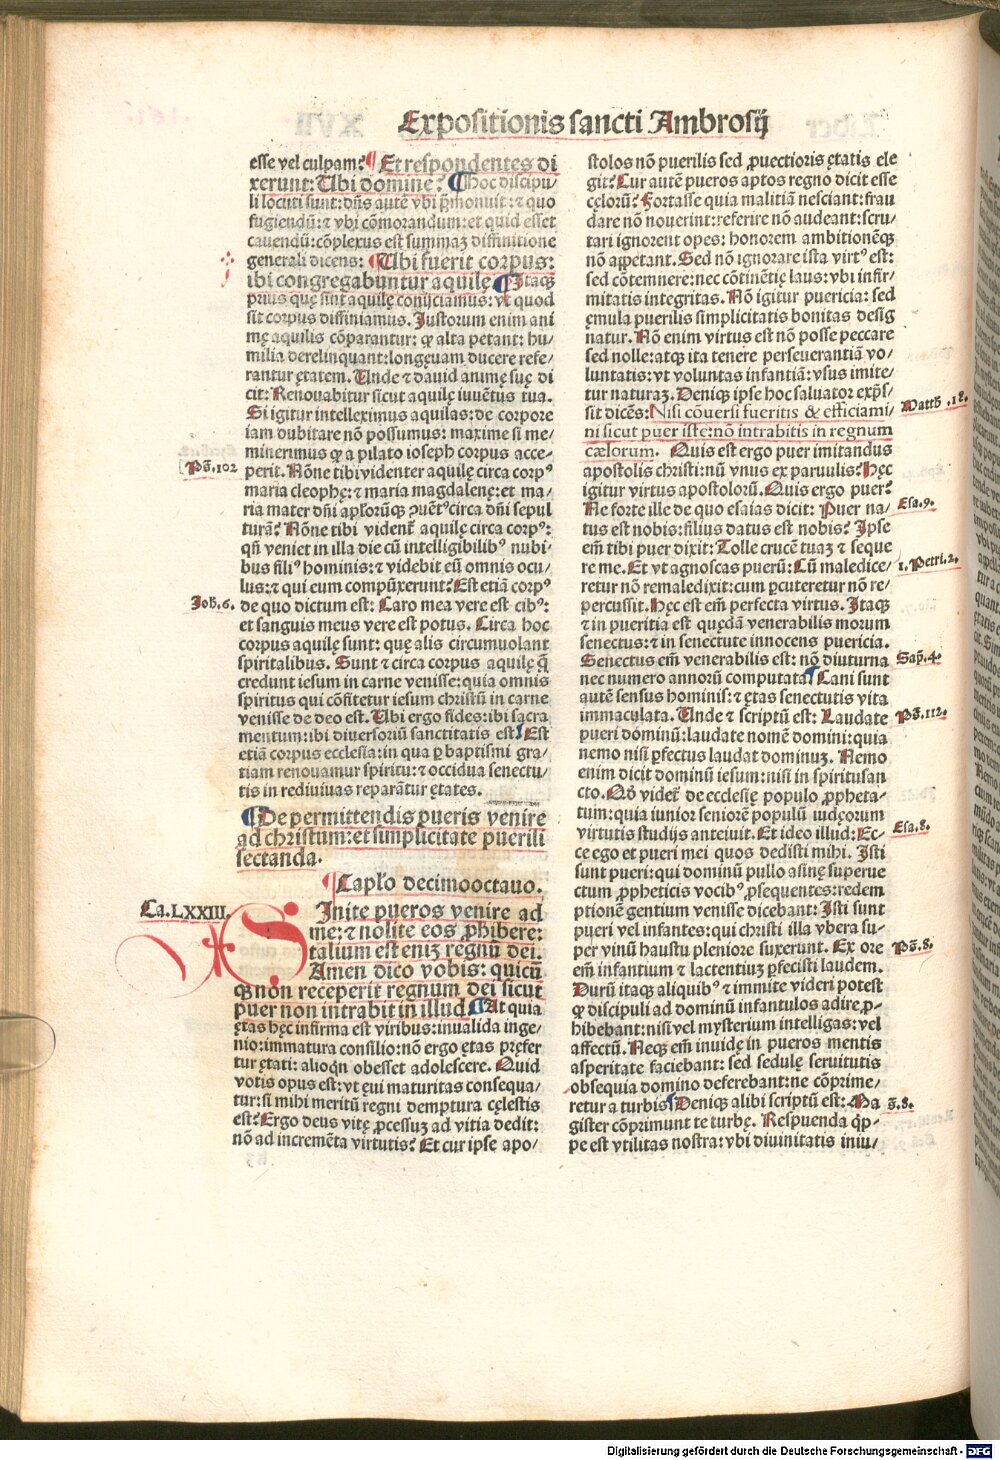 Expositionis sancti Ambrosij
esse vel culpam? Et respondentes di
xerunt: Ubi domine? Hoc discipu/
li locuti sunt: dñs autē vbi p̄monuit: ⁊ quo
fugiendū: ⁊ vbi cōmorandum: et quid esset
cauendū: cōplexus est summaꝫ diffinitione
generali dicens: Ubi fuerit corpus:
ibi congregabuntur aquilę Itaqꝫ
prius quę sint aquilę conijciamus: vt quod
sit corpus diffiniamus. Justorum enim ani
mę aquilis cōparantur: ꝙ alta petant: hu/
milia derelinquant: longęuam ducere refe/
rantur ętatem. Unde ⁊ dauid animę suę di
cit: Renouabitur sicut aquilę iuuētus tua.
Si igitur intelleximus aquilas: de corpore
iam dubitare nō possumus: maxime si me/
minerimus ꝙ a pilato ioseph corpus acce/
Ps̄. 102
perit. Nōne tibi videnter aquilę circa corpꝰ
maria cleophę: ⁊ maria magdalenę: et ma/
ria mater dn̄i apl'orūqꝫ ꝯuētꝰ circa dn̄i sepul
turā? Nōne tibi vident̄ aquilę circa corpꝰ:
qn̄ veniet in illa die cū intelligibilibꝰ nubi/
bus filiꝰ hominis: ⁊ videbit eū omnis ocu/
lus: ⁊ qui eum compūxerunt? Est etiā corpꝰ
Joh̄. 6.
de quo dictum est: Caro mea vere est cibꝰ:
et sanguis meus vere est potus. Circa hoc
corpus aquilę sunt: quę alis circumuolant
spiritalibus. Sunt ⁊ circa corpus aquilę q̄
credunt iesum in carne venisse: quia omnis
spiritus qui cōfitetur iesum christū in carne
venisse de deo est. Ubi ergo fides: ibi sacra
mentum: ibi diuersoriū sanctitatis est Est
etiā corpus ecclesia: in qua p̱ baptismi gra/
tiam renouamur spiritu: ⁊ occidua senectu/
tis in rediuiuas reparātur ętates.
De permittendis pueris venire
ad christum: et simplicitate puerili
sectanda.
Capl'o decimooctauo.
Ca. LXXIII.
SInite pueros venire ad
me: ⁊ nolite eos ꝓhibere:
talium est eniꝫ regnū dei.
Amen dico vobis: quicū
qꝫ non receperit regnum dei sicut
puer non intrabit in illud At quia
ętas hęc infirma est viribus: inualida inge/
nio: immatura consilio: nō ergo ętas pręfer
tur ętati: alioqn̄ obesset adolescere. Quid
votis opus est: vt ęui maturitas consequa/
tur: si mihi meritū regni demptura cęlestis
est? Ergo deus vitę ꝓcessuꝫ ad vitia dedit:
nō ad incremēta virtutis? Et cur ipse apo/
stolos nō puerilis sed ꝓuectioris ętatis ele
git? Cur autē pueros aptos regno dicit esse
cęlorū? Fortasse quia malitiā nesciant: frau
dare nō nouerint: referire nō audeant: scru/
tari ignorent opes: honorem ambitionēqꝫ
nō appetant. Sed nō ignorare ista virtꝰ est:
sed cōtemnere: nec cōtinētię laus: vbi infir/
mitatis integritas. Nō igitur puericia: sed
ęmula puerilis simplicitatis bonitas desig
natur. Nō enim virtus est nō posse peccare
sed nolle: atqꝫ ita tenere perseuerantiā vo/
luntatis: vt voluntas infantiā: vsus imite/
tur naturaꝫ. Deniqꝫ ipse hoc saluator exp̄s/
sit dicēs: Nisi cōuersi fueritis & efficiami/
Matth̄. 18.
ni sicut puer iste: nō intrabitis in regnum
cælorum. Quis est ergo puer imitandus
apostolis christi: nū vnus ex paruulis? Hęc
igitur virtus apostolorū. Quis ergo puer?
Ne forte ille de quo esaias dicit: Puer na/
Esa. 9.
tus est nobis: filius datus est nobis? Ipse
em̄ tibi puer dixit: Tolle crucē tuaꝫ ⁊ seque
re me. Et vt agnoscas puerū: Cū maledice/
1. Petri. 2.
retur nō remaledixit: cum p̱cuteretur nō re/
percussit. Hęc est em̄ perfecta virtus. Itaqꝫ
⁊ in pueritia est quędā venerabilis morum
senectus: ⁊ in senectute innocens puericia.
Senectus em̄ venerabilis est: nō diuturna
Sap̄. 4.
nec numero annorū computata Cani sunt
autē sensus hominis: ⁊ ętas senectutis vita
immaculata. Unde ⁊ scriptū est: Laudate
Ps̄. 112.
pueri dominū: laudate nomē domini: quia
nemo nisi p̱fectus laudat dominuꝫ. Nemo
enim dicit dominū iesum: nisi in spiritusan
cto. Qō videt̄ de ecclesię populo ꝓpheta/
tum: quia iunior seniorē populū iudęorum
virtutis studijs anteiuit. Et ideo illud: Ec/
Esa. 8.
ce ego et pueri mei quos dedisti mihi. Isti
sunt pueri: qui dominū pullo asinę superue
ctum ꝓpheticis vocibꝰ ꝓsequentes: redem
ptionē gentium venisse dicebant: Isti sunt
pueri vel infantes: qui christi illa vbera su/
per vinū haustu pleniore suxerunt. Ex ore
Ps̄. 8.
em̄ infantium ⁊ lactentiuꝫ p̱fecisti laudem.
Durū itaqꝫ aliquibꝰ ⁊ immite videri potest
ꝙ discipuli ad dominū infantulos adire ꝓ/
hibebant: nisi vel mysterium intelligas: vel
affectū. Neqꝫ em̄ inuidę in pueros mentis
asperitate faciebant: sed sedulę seruitutis
obsequia domino deferebant: ne cōprime/
retur a turbis Deniqꝫ alibi scriptū est: Ma
s̄. 8.
gister cōprimunt te turbę. Respuenda q̄p/
pe est vtilitas nostra: vbi diuinitatis iniu/
Digitalisierung gefördert durch die Deutsche Forschungsgemeinschaft - DFG